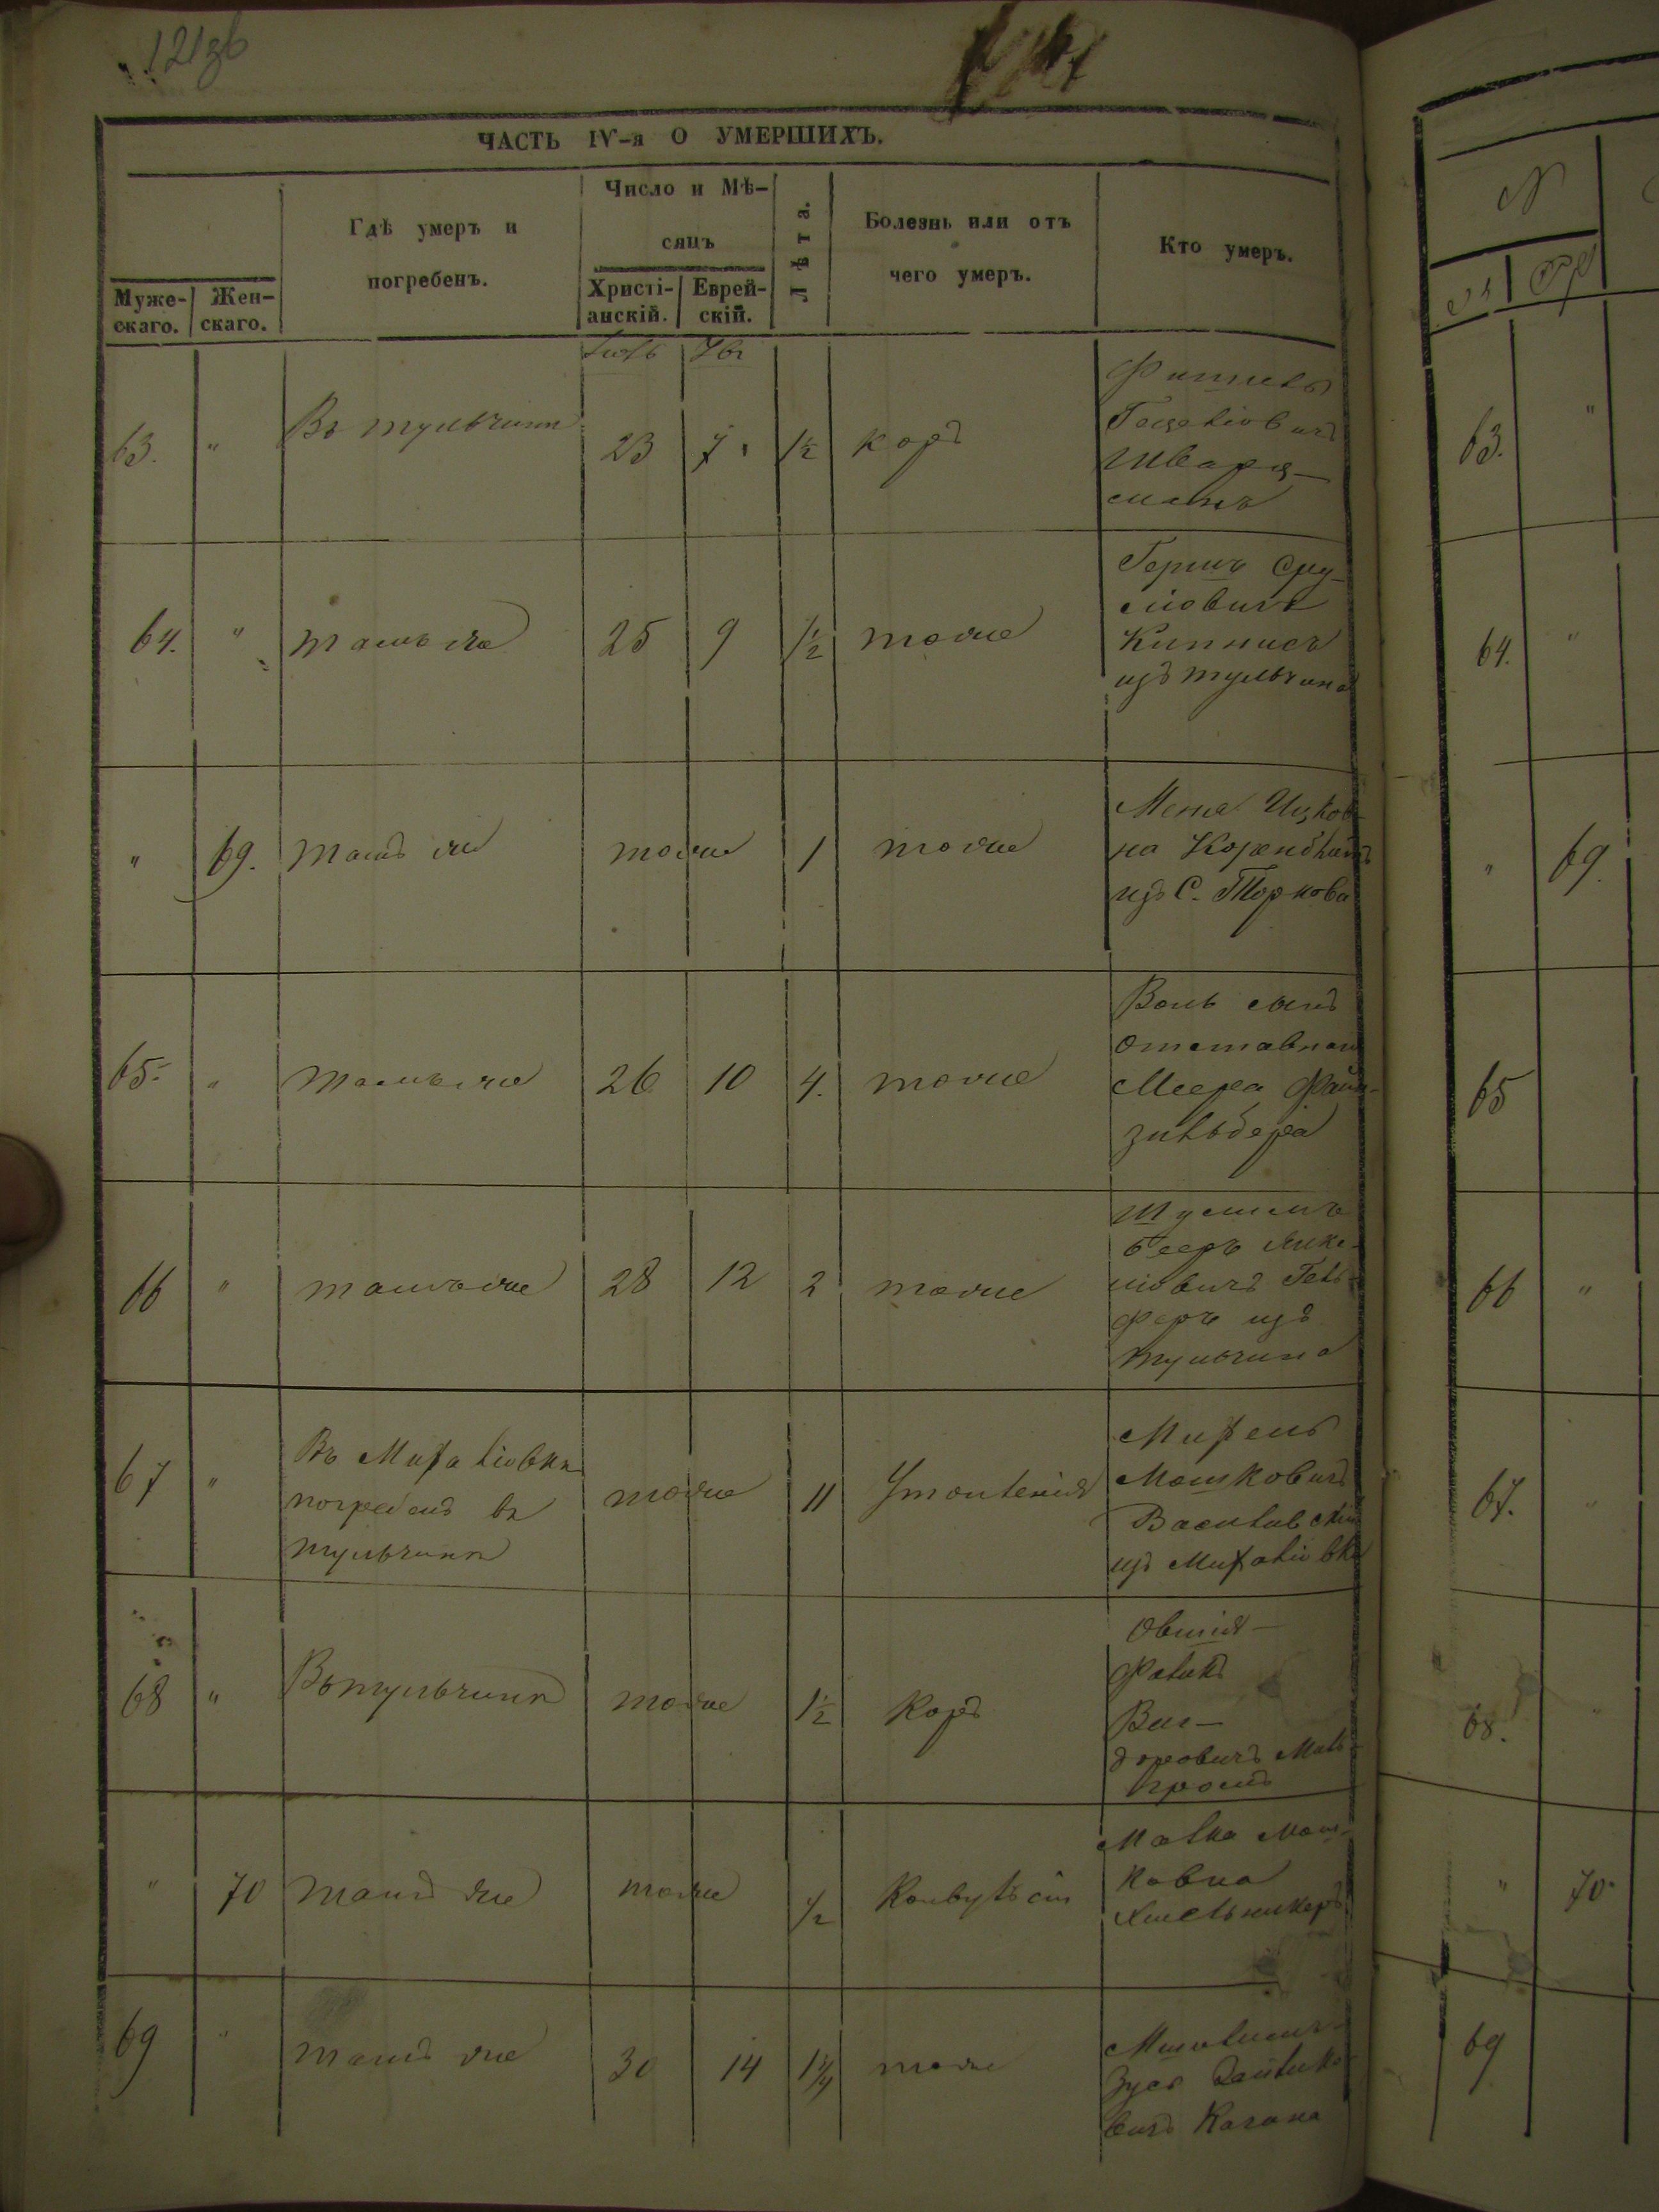 121зв
ЧАСТЬ IV-я О УМЕРШИХЪ.
Муже-
скаго.
Жен-
скаго.
Гдѣ умеръ и
погребенъ.
Число и Мѣ-
сяцъ
Христі-
анскій.
Еврей-
скій.
Лѣта.
Болезнь или отъ
чего умеръ.
Кто умеръ.
63. " Въ тульчинѣ 23 7 1½ корь
Фишель
Шварц-
манъ
64. " тамъ же 25 9 ½ тоже
Гершъ Сру-
лiовичъ
Кипнисъ
изъ тульчина
" 69. тамъ же тоже 1 тоже
Ицков-
на
изъ С. Торкова
65. " тамъ же 26 10 4. тоже
сынъ
отставнаго
Меера Фай-
зильбера
66 " тамъ же 28 12 2 тоже
Беръ
люовичъ Гель-
феръ изъ
тульчина
67 " Въ Михалiовкѣ
погребенъ въ
тульчинѣ
тоже 11
Михель
Мошковичъ
Васильвскiй
изъ Михалiовки
68 " Въ тульчинѣ тоже 1½ Корь
Овшiя-
Фаликъ
Виг-
доровичъ Миль-
громъ
" 70 тамъ же тоже ½ Конвульсiи
Малка Мош-
ковна
Хмельникеръ
69 " тамъ же 30 14 1¼ тоже
Зусь
вичъ Кагана
63. "
64. "
" 69.
65
66 "
67. "
68. "
" 70.
69